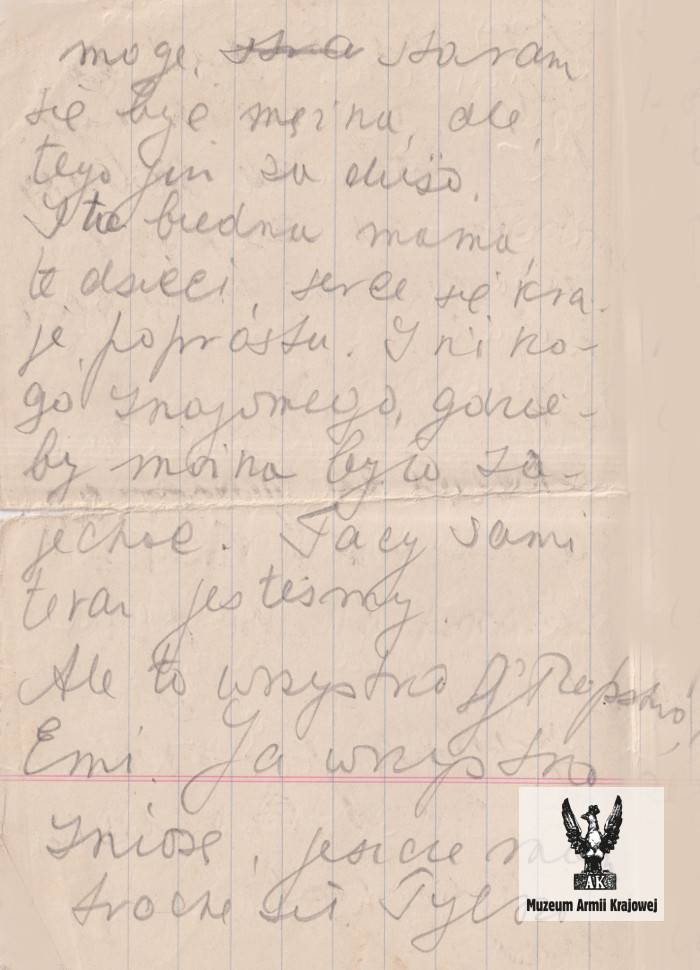 mogę. ~~stra~~ staram
się być mężna, ale,
tego już za dużo.
I ta biedna mama,
te dzieci, serce się kra-
je poprostu. I niko-
go znajomego, gdzie-
by można było za-
jechać. Tacy sami
teraz jesteśmy.
Ale to wszystko
Emi. Ja wszystko
zniosę, jeszcze mam
trochę sił. Tylko
AK
Muzeum Armii Krajowej